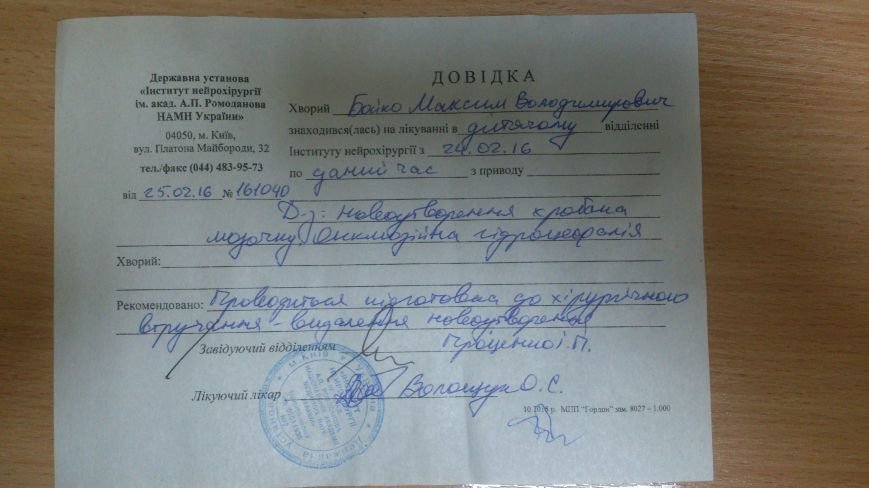 Державна установа
«Інститут нейрохірургії
ім. акад. А.П. Ромоданова
НАМН України»
04050, м. Київ,
вул. Платона Майбороди, 32
тел./факс (044) 483-95-73
від 25.02.16 № 161040
ДОВІДКА
Хворий Бойко Максим Володимирович
знаходився(лась) на лікуванні в дитячому відділенні
Інституту нейрохірургії з 24.02.16
по даний час з приводу
Д-з: Новоутворення хробака
мозочку. Оклюзійна гідроцефалія
Хворий:
Рекомендовано: Проводиться підготовка до хірургічного
втручання - видалення новоутворення
Завідуючий відділенням Проценко І.П.
Лікуючий лікар Волощук О.С.
10.2015 р. МПП "Гордон" зам. 8027 – 1.000